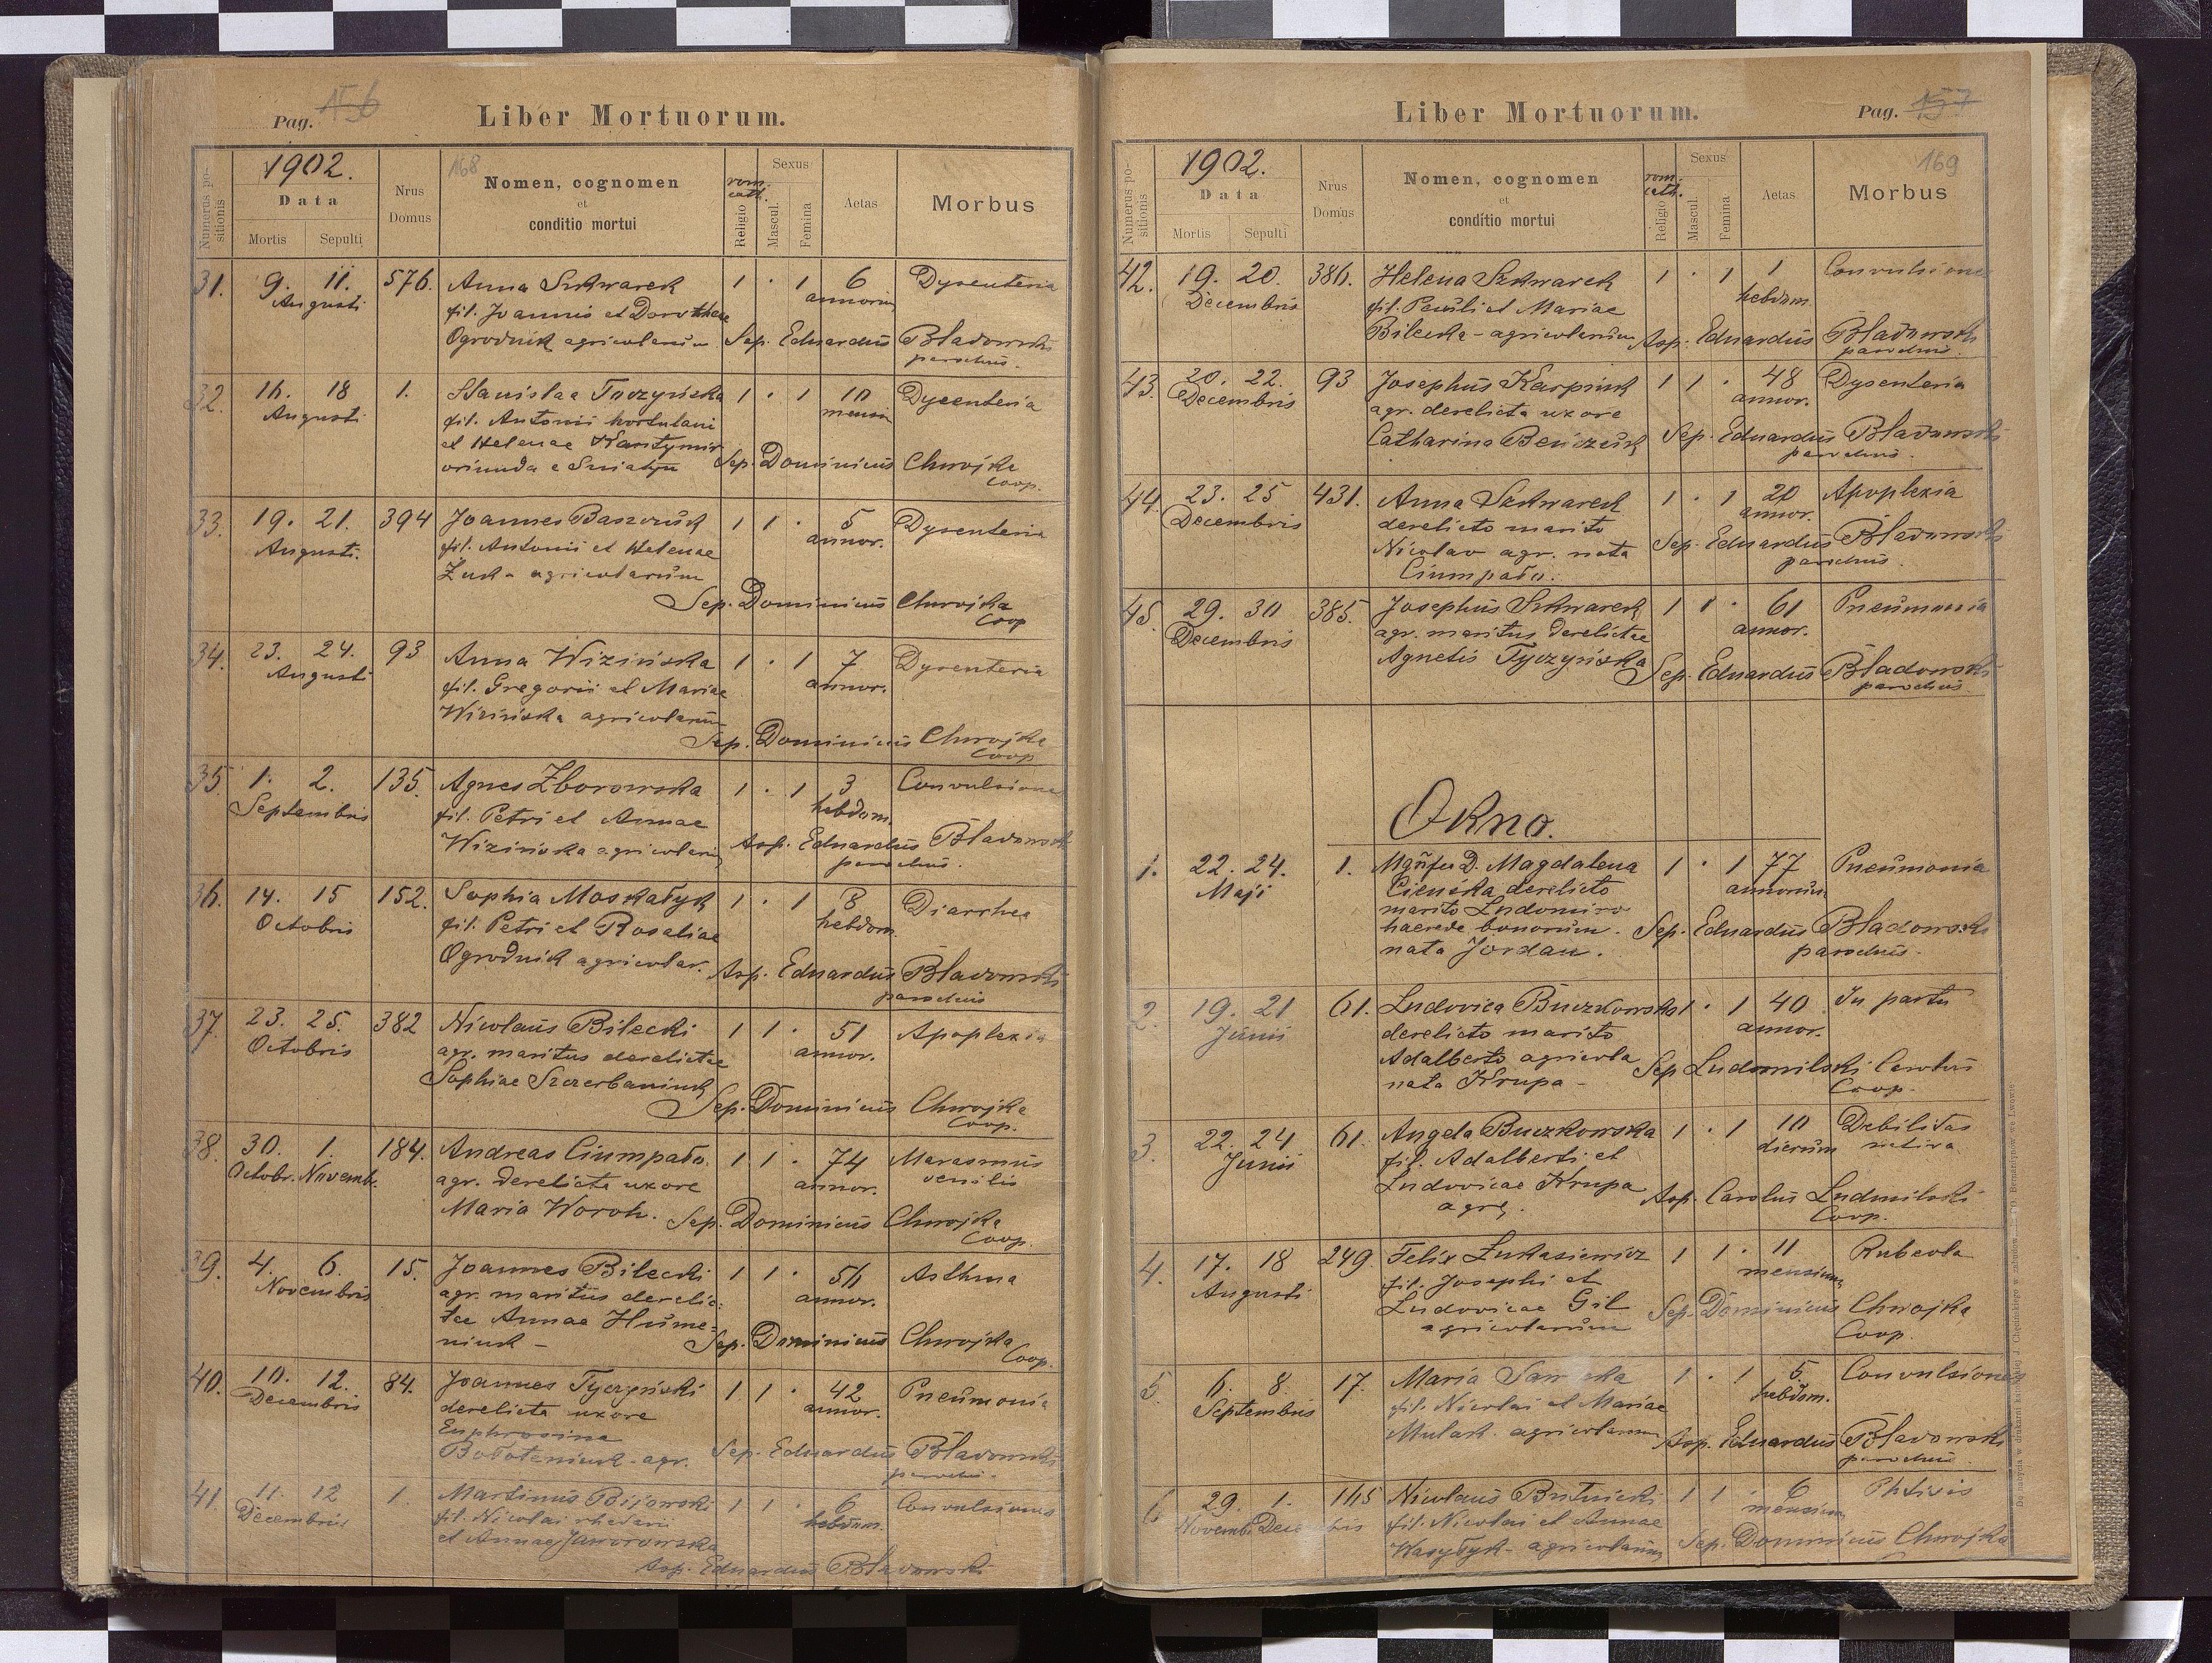 Pag. 156
Liber Mortuorum.
Numerus positionis
1902.
Data
Mortis Sepulti
Nrus Domus
168
Nomen, cognomen
et
conditio mortui
rom. cath.
Religio
Sexus
Mascul.
Femina
Aetas
Morbus
31. 9. 11. 576. Anna Szkwarek 1 · 1 6 Dysenteria
Augusti fil. Joannis et Dorotheae annorum
Ogrodnik agricolarum Sep. Eduardus Bładowski
parochus.
32. 16. 18 1. Stanislaa Tyczyńska 1 · 1 10 Dysenteria
Augusti fil. Antonii hortulani mensium
et Helenae
oriunda e Sniatyn Sep. Dominicus Chwojka
Coop.
33. 19. 21. 394 Joannes Baszczuk 1 1 · 5 Dysenteria
Augusti. fil. Antonii et Helenae annor.
Żuk - agricolarum
Sep. Dominicus Chwojka
Coop
34. 23. 24. 93 Anna Wizińska 1 · 1 7 Dysenteria
Augusti fil. Gregorii et Mariae annor.
Wizińska agricolarum
Sep. Dominicus Chwojka
Coop
35 1. 2. 135. Agnes Zborowska 1 · 1 3 Convulsiones
Septembris fil. Petri et Annae hebdom.
Wizińska agricolarum Asp. Eduardus Bładowski
parochus.
36. 14. 15 152. Sophia Moskałyk 1 · 1 8 Diarrhea
Octobris fil. Petri et Rosaliae hebdom.
Ogrodnik agricolar. Asp. Eduardus Bładowski
parochus
37. 23. 25. 382 Nicolaus Bilecki 1 1 · 51 Apoplexia
Octobris agr. maritus derelictae annor.
Sophiae Szczerbaniuk
Sep. Dominicus Chwojka
Coop.
38. 30. 1. 184. Andreas Ciumpało. 1 1 · 74 Marasmus
Octobr. Novemb. agr. derelicta uxore annor. senilis
Maria Woroh. Sep. Dominicus Chwojka
Coop.
39. 4. 6. 15. Joannes Bilecki 1 1 · 56 Asthma
Novembris agr. maritus derelic- annor.
tae Annae Hume-
niuk - Sep. Dominicus Chwojka
Coop.
40. 10. 12. 84. Joannes Tyczyński 1 1 · 42 Pneumonia
Decembris derelicta uxore annor.
Euphrosina
Bołoteniuk - agr. Sep. Eduardus Bładowski
parochus.
41. 11. 12 1. Martinus Bijowski 1 1 · 6 Convulsiones
Decembris fil. Nicolai rhedarii hebdom.
et Annae Jaworowska
Asp. Eduardus Bładowski
Liber Mortuorum.
Pag. 157
Numerus positionis
1902.
Data
Mortis Sepulti
Nrus Domus
Nomen, cognomen
et
conditio mortui
rom. cath.
Religio
Sexus
Mascul.
Femina
Aetas
169
Morbus
42. 19. 20. 386. Helena Szkwarek 1 · 1 1 Convulsiones
Decembris fil. Pauli et Mariae hebdom.
Bilecka - agricolarum Asp. Eduardus Bładowski
parochus.
43. 20. 22. 93 Josephus Karpiuk 1 1 · 48 Dysenteria
Decembris agr. derelicta uxore annor.
Catharina Beńczuk Sep. Eduardus Bładowski
parochus.
44. 23. 25 431. Anna Szkwarek 1 · 1 20 Apoplexia
Decembris derelicto marito annor.
Nicolao agr. nata Sep. Eduardus Bładowski
Ciumpało. parochus.
45. 29. 30 385. Josephus Szkwarek 1 1 · 61 Pneumonia
Decembris agr. maritus derelictae annor.
Agnetis Tyczyńska Sep. Eduardus Bładowski
parochus
Okno.
1. 22. 24. 1. D. Magdalena 1 · 1 77 Pneumonia
Maji Cieńska derelicto annorum
marito Ludomiro
haerede bonorum. Sep. Eduardus Bładowski
nata Jordan. parochus.
2. 19. 21 61. Ludovica Buczkowska 1 · 1 40 In partu
Junii derelicto marito annor.
Adalberto agricola
nata Krupa - Sep Ludmilski Carolus
Coop.
3. 22. 24 61. Angela Buczkowska 1 · 1 10 Debilitas
Junii fil. Adalberti et dierum nativa
Ludovicae Krupa Asp. Carolus Ludmilski
agr. Coop.
4. 17. 18 249. Felix Łukasiewicz 1 1 · 11 Rubeola
Augusti fil. Josephi et mensium
Ludovicae Gil Sep. Dominicus Chwojka
agricolarum Coop.
5 6. 8. 17. Maria 1 · 1 5. Convulsiones
Septembris fil. Nicolai et Mariae hebdom.
Mulak. agricolarum Asp. Eduardus Bładowski
parochus.
6 29. 1. 165 Nicolaus Butnicki 1 1 · 6 Phtisis
Novemb. Decembris fil. Nicolai et Annae mensium
Wasyłyk - agricolarum Sep. Dominicus Chwojka